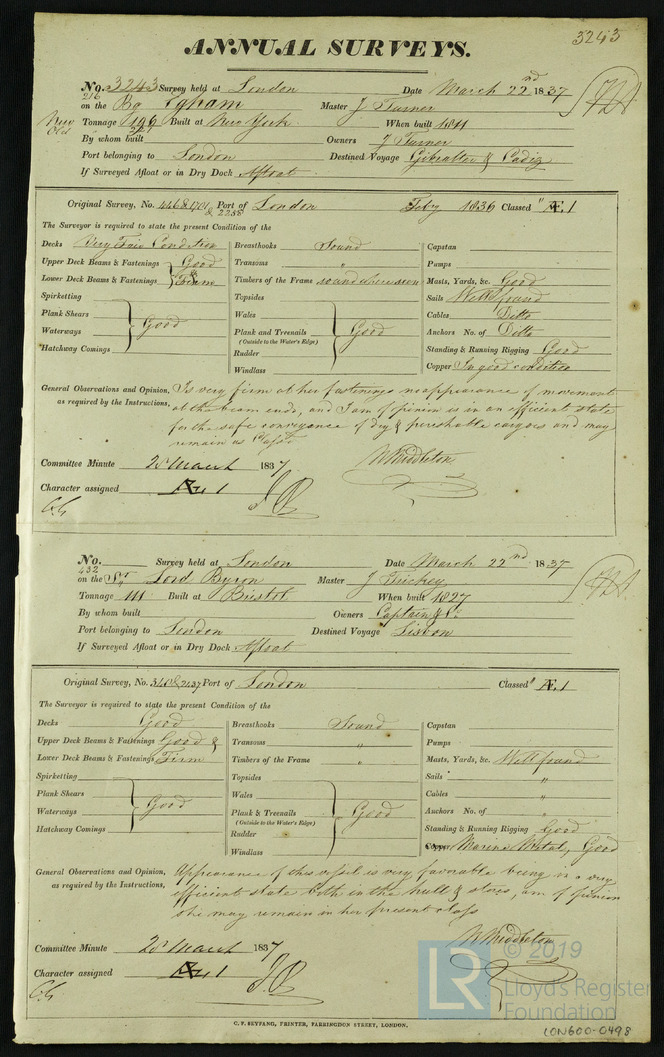 3243
ANNUAL SURVEYS.
No. 3243 Survey held at London Date March 22nd 1837
216
on the Bg Egham Master J Turner
New
Old
Tonnage 196 Built at New York When built 1811
By whom built Owners J Turner
Port belonging to London Destined Voyage Gibralter & Cadiz
If Surveyed Afloat or in Dry Dock Afloat
Original Survey, No. 446 & 1701 Port of London Feby 1836 Classed Æ.1
& 2258
The Surveyor is required to state the present Condition of the
Decks Very Fair Condition Breasthooks Sound Capstan
Upper Deck Beams & Fastenings Good Transoms " Pumps
Lower Deck Beams & Fastenings Firm Timbers of the Frame sound where seen Masts, Yards, &c. Good
Spirketting Topsides Sails Well found
Plank Shears Wales Cables Ditto
Waterways Good Plank and Treenails Good Anchors No. of Ditto
(Outside to the Water's Edge) Standing & Running Rigging Good
Hatchway Comings Rudder
Windlass Copper In good condition
General Observations and Opinion, Is very firm at her fastenings no appearance of movement
as required by the Instructions, at the beam ends, and I am of opinion is in an efficient state
for the safe conveyance of dry & perishable cargoes and may
remain as Class'd
Committee Minute 28 March 1837 W Middleton
Character assigned Æ 1
No. Survey held at London Date March 22nd 1837
432
on the Sr Lord Byron Master J Trickey
Tonnage 111 Built at Bristol When built 1827
By whom built Owners Captain & Co
Port belonging to London Destined Voyage Lisbon
If Surveyed Afloat or in Dry Dock Afloat
Original Survey, No. 348 & 2137 Port of London Classed Æ.1
The Surveyor is required to state the present Condition of the
Decks Good Breasthooks Sound Capstan
Upper Deck Beams & Fastenings Good & Transoms " Pumps
Lower Deck Beams & Fastenings Firm Timbers of the Frame " Masts, Yards, &c. Well found
Spirketting Topsides Sails "
Plank Shears Wales Cables "
Waterways Good Plank & Treenails Good Anchors No. of "
(Outside to the Water's Edge) Standing & Running Rigging Good
Hatchway Comings Rudder
Windlass Copper Marine Metal, Good
General Observations and Opinion, Appearance of this vessel is very favorable being in a very
as required by the Instructions, efficient state both in the hull & stores, am of opinion
she may remain in her present class
Committee Minute 28 March 1837 W Middleton
Character assigned Æ 1
© 2019
LR
Lloyd's Register
Foundation
C. F. SEYFANG, PRINTER, FARRINGDON STREET, LONDON.
LON600-0498